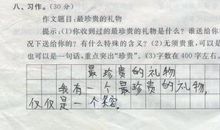 八、习作。(30分)
作文题目:最珍贵的礼物
提示:(1)你收到过的最珍贵的礼物是什么?谁送给
况下送给你的?有什么特殊的含义?(2)无须贵重,可以是
也可以是一句话,重点突出“珍贵”。(3)字数在400字左右。
最珍贵的礼物
我有一个最珍贵的礼物
仅仅是一个